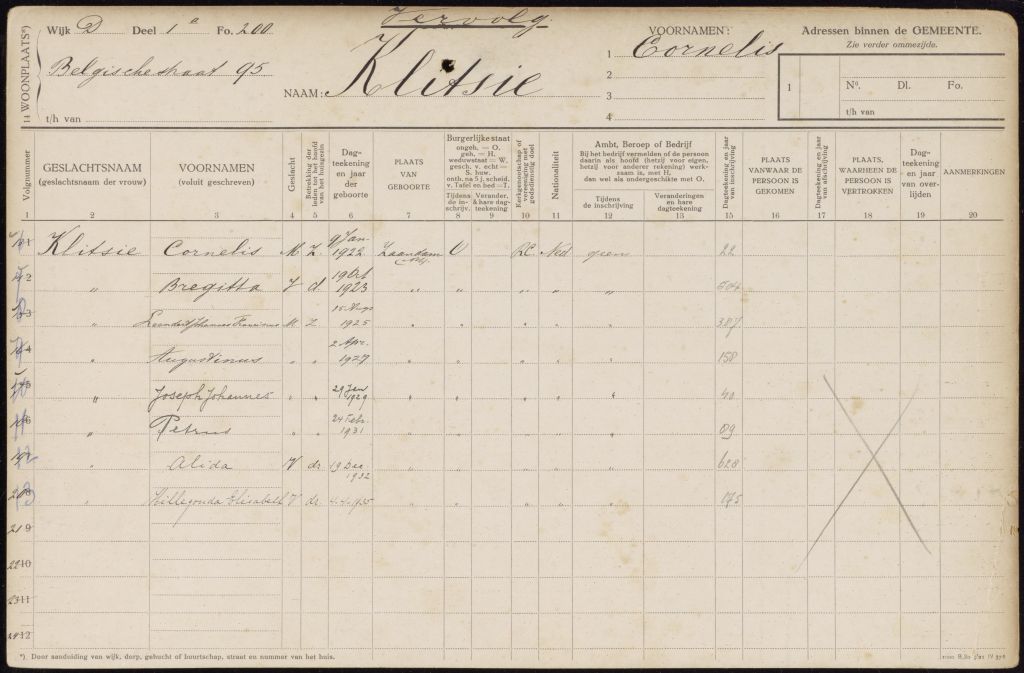 Vervolg
Wijk D Deel 1e Fo. 200
14 WOONPLAATS*)
Belgischestraat 95
t/h van
NAAM: Klitsie
VOORNAMEN:
1 Cornelis
2
3
4
Adressen binnen de GEMEENTE.
Zie verder ommezijde.
1 No. Dl. Fo.
t/h van
Volgnummer
GESLACHTSNAAM
(geslachtsnaam der vrouw)
VOORNAMEN
(voluit geschreven)
Geslacht
Betrekking der leden tot het hoofd van het huisgezin
Dag-
teekening
en jaar
der
geboorte
PLAATS
VAN
GEBOORTE
Burgerlijke staat
ongeh. — O.
geh. — H.
weduwstaat — W.
gesch. v. echt —
S. huw.
ontb. na 5 j. scheid.
v. Tafel en bed — T.
Tijdens
de in-
schrijv.
Verander.
& hare dag-
teekening
Kerkgenootschap of vereeniging met godsdienstig doel
Nationaliteit
Ambt, Beroep of Bedrijf
Bij het bedrijf vermelden of de persoon
daarin als hoofd (hetzij voor eigen,
hetzij voor anderer rekening) werk-
zaam is, met H.
dan wel als ondergeschikte met O.
Tijdens
de inschrijving
Veranderingen
en hare
dagteekening
Dagteekening en jaar van inschrijving
PLAATS
VANWAAR DE
PERSOON IS
GEKOMEN
Dagteekening en jaar van afschrijving
PLAATS,
WAARHEEN DE
PERSOON IS
VERTROKKEN
Dag-
teekening
en jaar
van over-
lijden
AANMERKINGEN
1 2 3 4 5 6 7 8 9 10 11 12 13 15 16 17 18 19 20
1 Klitsie Cornelis M Z 9 Jan 1922 Zaandam O RC Ned geen 22
2 " Bregitta V d. 19 Oct 1923 " " " " " 504
3 " Leendert Johannes M Z 15 Aug 1925 " " " " " 387
4 " Augustinus " " 2 Apr. 1927 " " " " " 158
5 " Joseph Johannes " " 29 Jan 1929 " " " " " 40
6 " Petrus " " 24 Febr. 1931 " " " " " 09
" Alida V dr 19 Dec 1932 " " " " " 628
20 " Hillegonda Elisabeth V dr 4-4-1935 " " " " " 175
21 9
22 10
23 11
24 12
*) Door aanduiding van wijk, dorp, gehucht of buurtschap, straat en nummer van het huis.